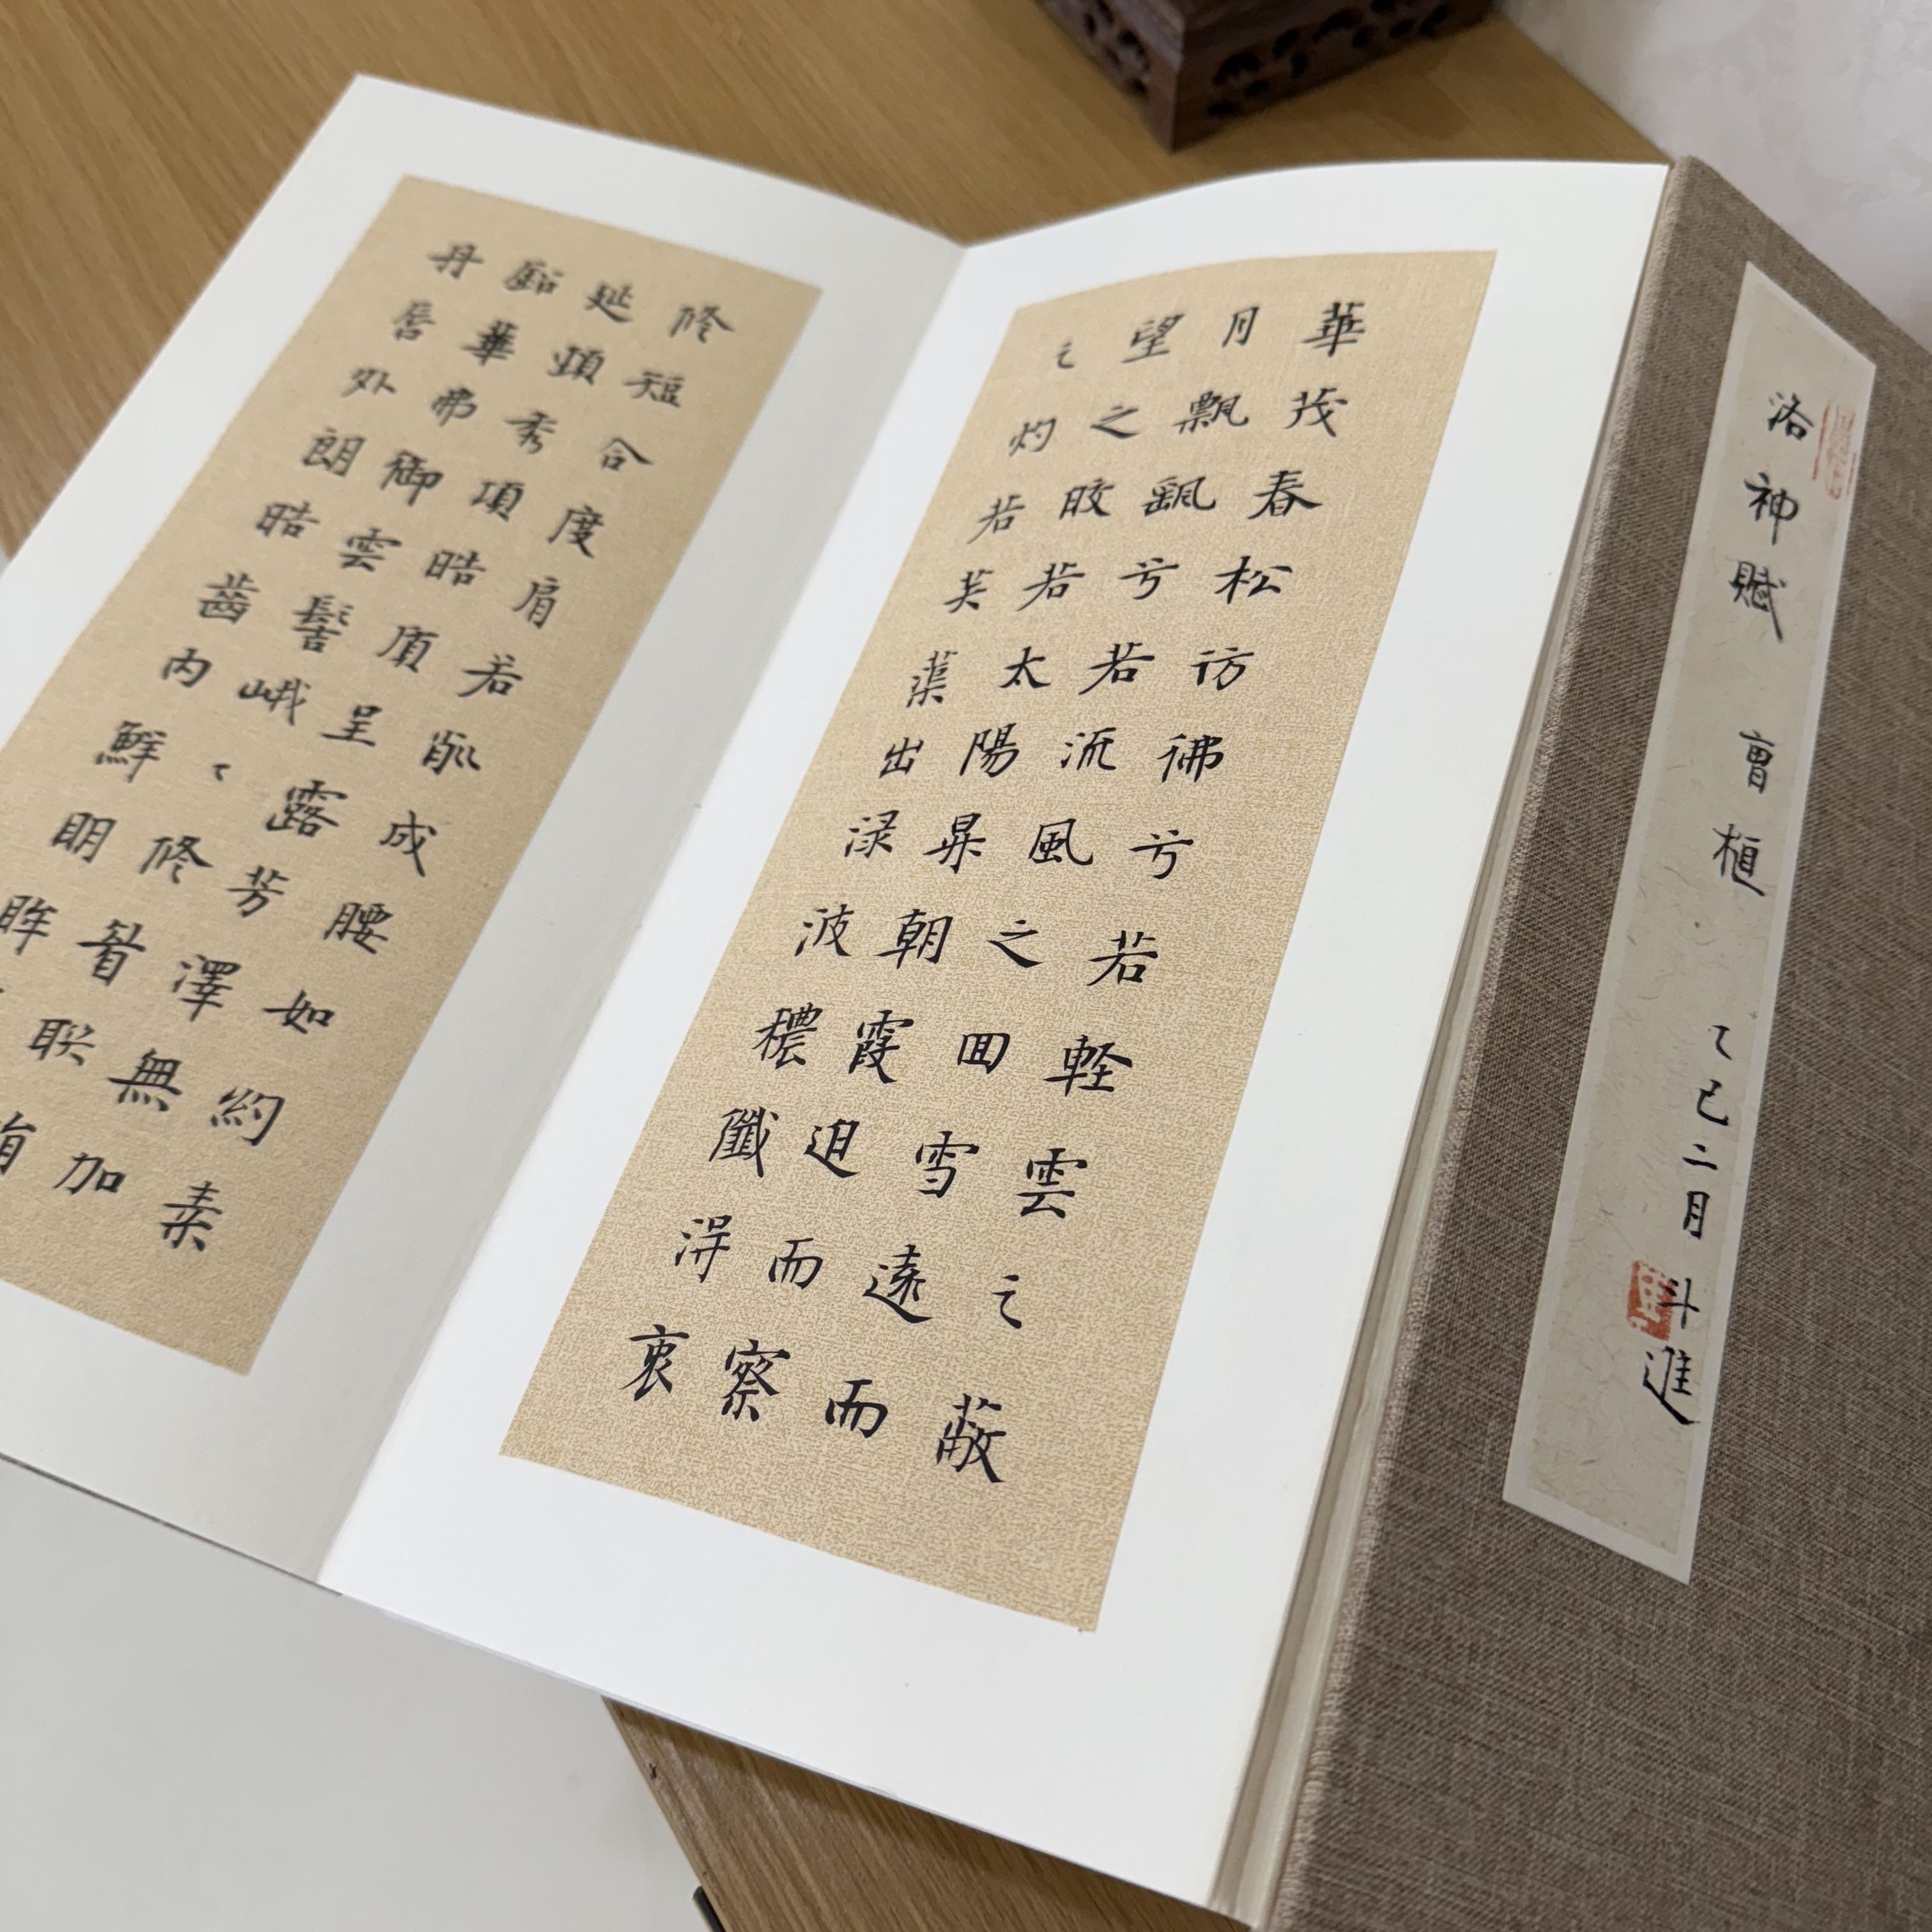 洛神賦 曹植 乙巳二月 斗進
華茂春松彷彿兮若軽雲之蔽
月飄飖兮若流風之囬雪遠而
望之晈若太陽昇朝霞迫而察
之灼若芙蕖出淥波穠纖得衷
修短合度肩若削成腰如約素
延頸秀項晧質呈露芳澤無加
鉛華弗御雲髻峨〻修眉聯
丹唇外朗晧齒内鮮明眸